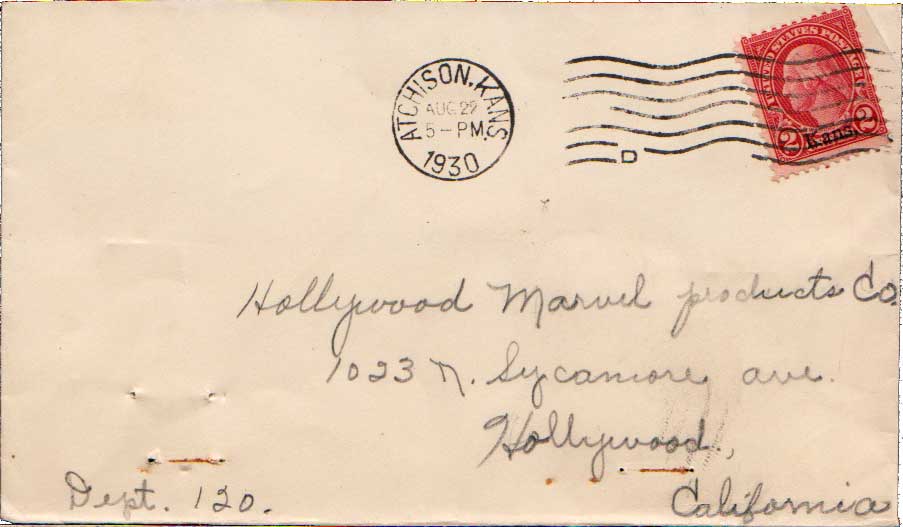 ATCHISON, KANS.
AUG 22
5 - PM
1930
D
UNITED STATES POSTAGE
2 Kans. 2
Hollywood Marvel products Co.
1023 N. Sycamore ave.
Hollywood,
Dept. 120.
California